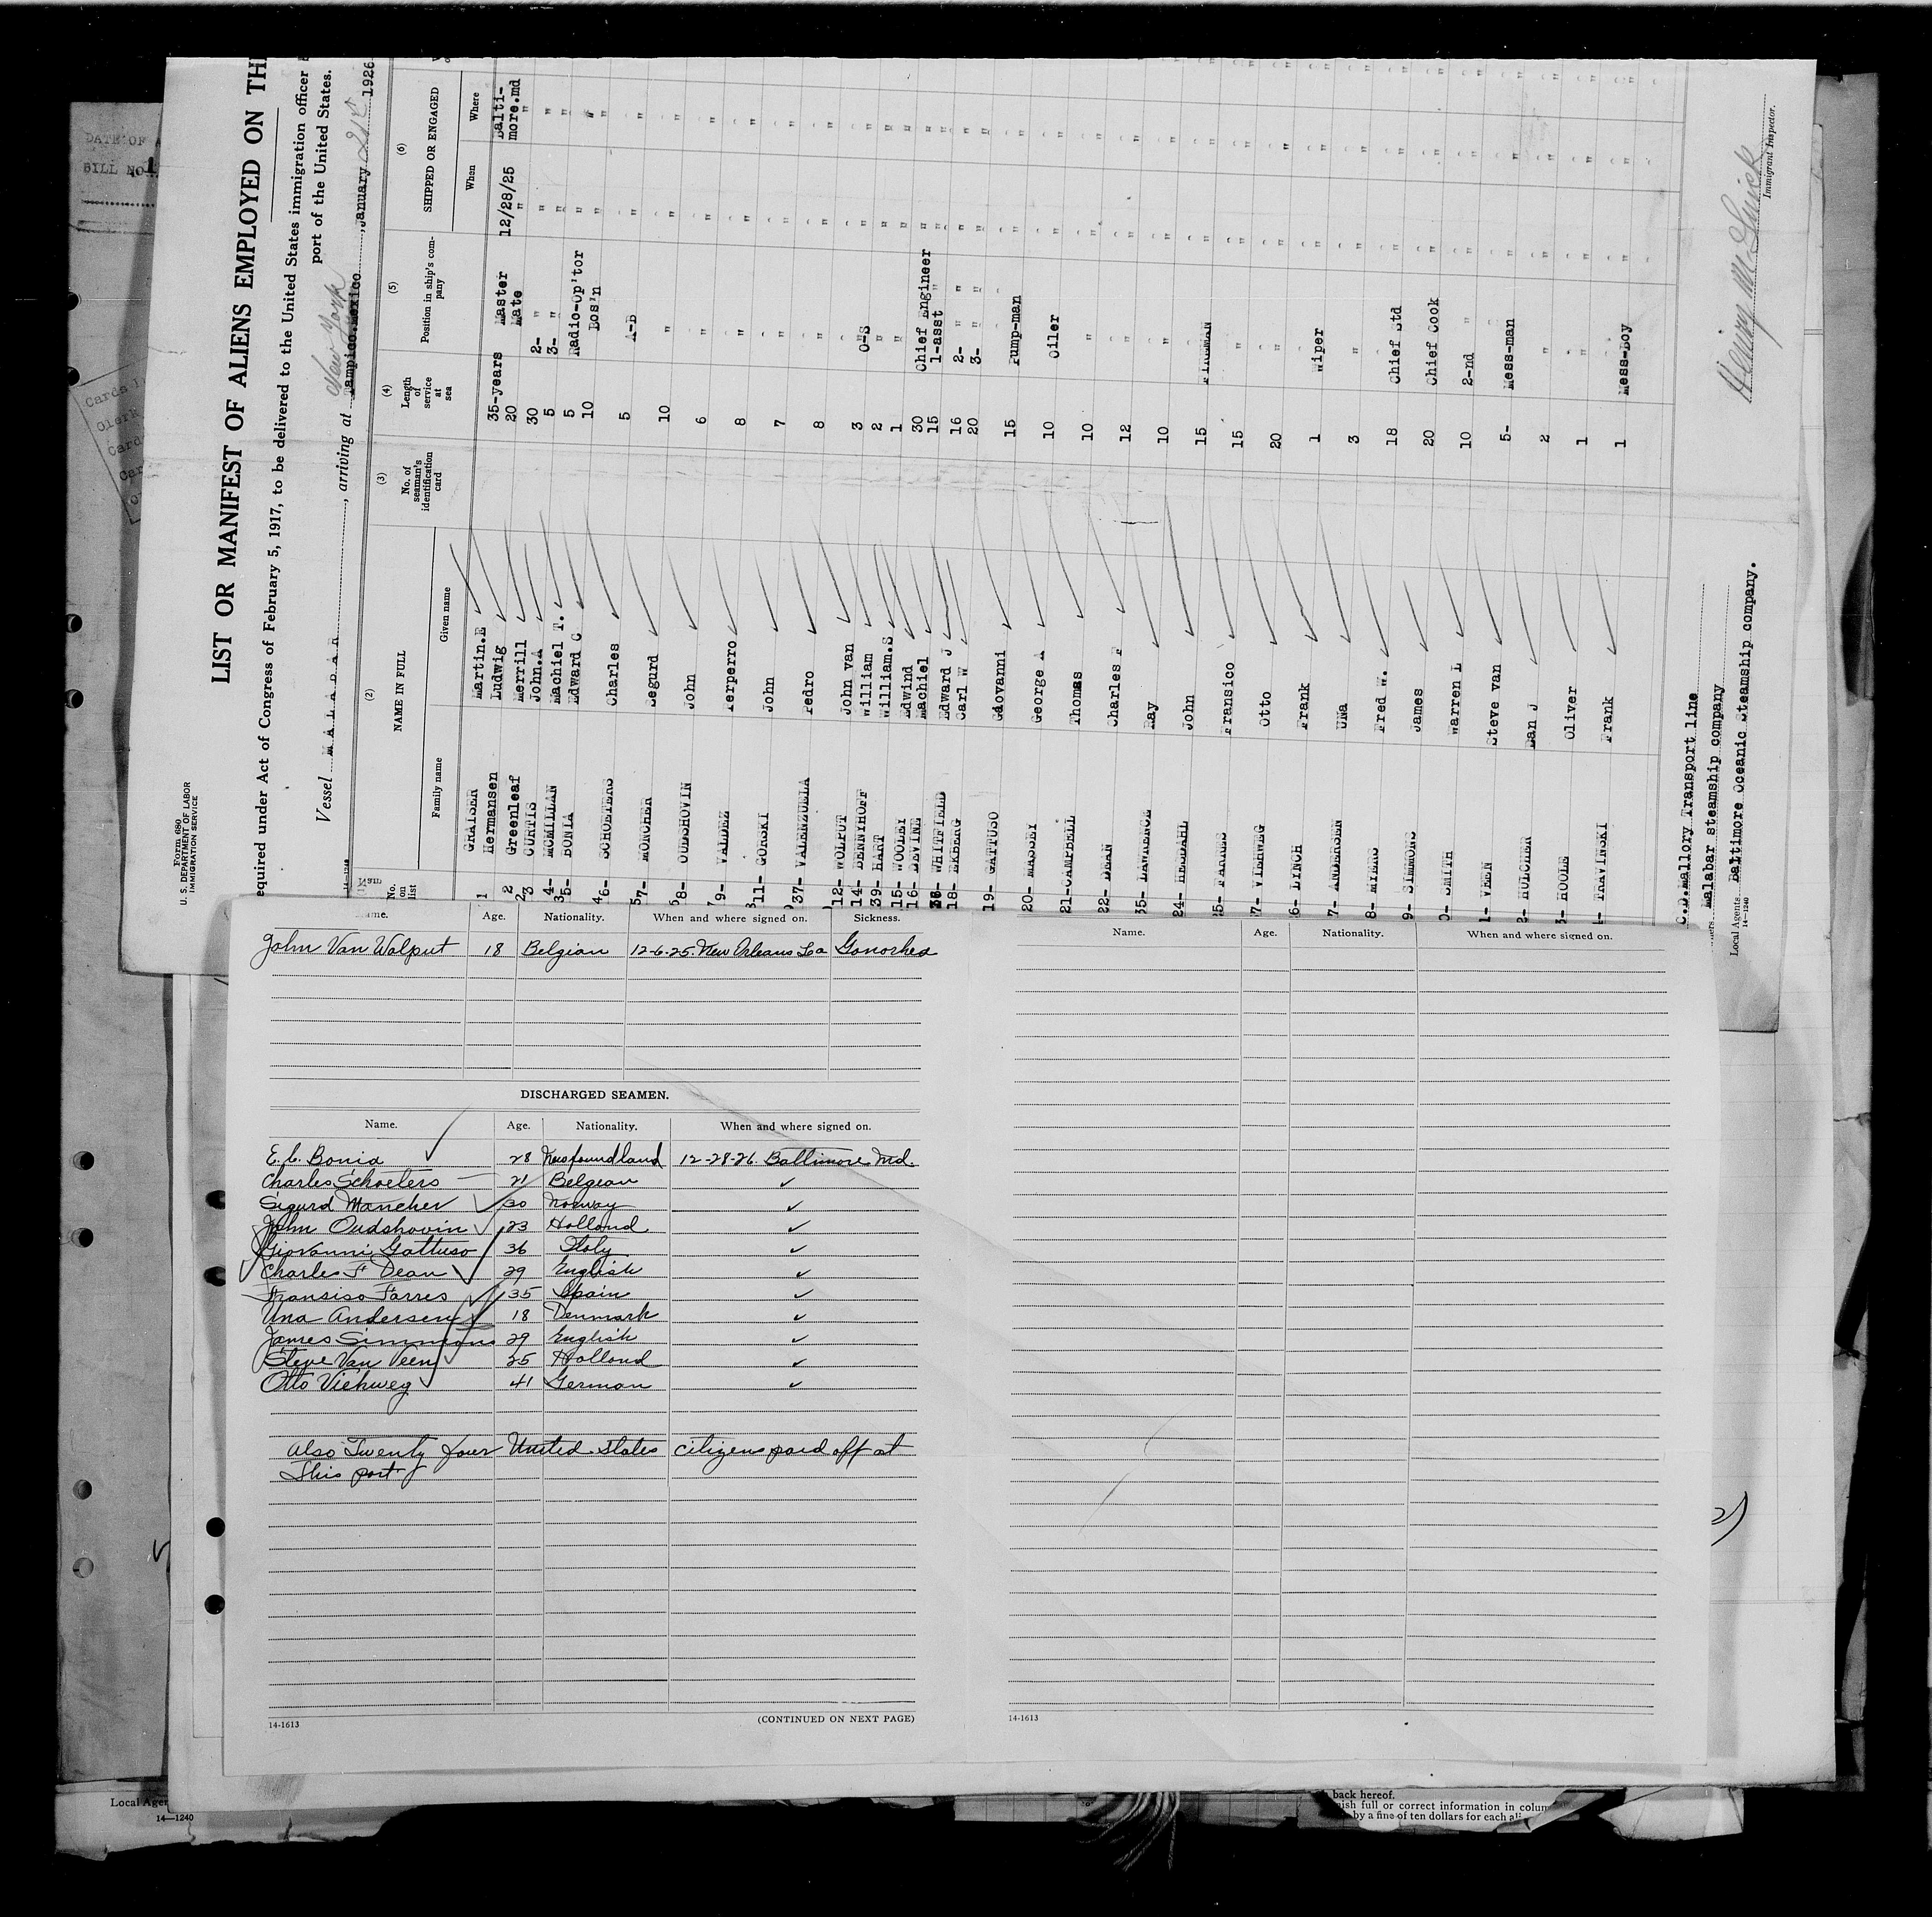 U. S. DEPARTMENT OF LABOR
IMMIGRATION SERVICE
Form 680
LIST OR MANIFEST OF ALIENS EMPLOYED ON TH
equired under Act of Congress of February 5, 1917, to be delivered to the United States immigration officer
port of the United States.
Vessel MALABAR, arriving at Tampico.Mexico New York, January 21st 1926
14-1240
(2) (3) (4) (5) (6)
No. on list NAME IN FULL No. of seaman's identification card Length of service at sea Position in ship's company SHIPPED OR ENGAGED
Family name Given name When Where
1 GRAISER Martin.E 35-years Master 12/28/25 Balti-more.md
Hermansen Ludwig 20 Mate " "
2 Greenleaf Merrill 30 2- "
3 CURTIS John.A 5 3- " " "
4- MCMILLAN Machiel T. 5 Radio-Op'tor " "
5- BONIA Edward C 10 Bos'n " "
6- SCHOETERS Charles 5 A-B " "
7- MONCHER Segurd 10 " " "
8- OUDSHOVIN John 6 " " "
9- VALDEZ Perperro 8 " " "
11- GORSKI John 7 " " "
37- VALENZUELA Pedro 8 " " "
12- WOLPUT John van 3 O-S " "
14- BENTHOFF William 2 " " "
39- HART William.S 1 " " "
15- WOOLEY Edwind 30 Chief Engineer " "
16- DEVINE Machiel 15 1-asst " " "
WHITFIELD Edward J 16 2- " " " "
18- EKBERG Carl W 20 3- " " " "
19- GATTUSO Giovanni 15 Pump-man " "
20- MASSEY George A 10 Oiler " "
21-CAMPBELL Thomas 10 " " "
22- DEAN Charles F 12 " " "
35- LAWRENCE Ray 10 " " "
24- HEGDAHL John 15 Fireman " "
5- FARRES Fransico 15 " " "
7- VIEHWEG Otto 20 " " "
6- LYNCH Frank 1 Wiper " "
7- ANDERSEN Una 3 " " "
8- MYERS Fred W. 18 Chief Std " "
9- SIMMONS James 20 Chief Cook " "
0- SMITH Warren L 10 2-nd " " "
1- VEEN Steve van 5- Mess-man " "
2- HULCHER Dan J 2 " " "
HOOLE Oliver 1 " " "
TRAVINSKI Frank 1 Mess-Boy " "
C.D.Mallory Transport line
Malabar steamship company
Local Agents Baltimore Oceanic Steamship company.
14-1240
Immigrant Inspector.
DATE OF
BILL NO.
Name. Age. Nationality. When and where signed on. Sickness.
John Van Wolput 18 Belgian 12-6-25. New Orleans La Gonorhea
DISCHARGED SEAMEN.
Name. Age. Nationality. When and where signed on.
E. C. Bonia 28 Newfoundland 12-28-26. Baltimore Md.
Charles Schoeters 21 Belgean ✓
Sigurd Mancher 30 Norway ✓
John Oudshovin 23 Holland ✓
Giovanni Gattuso 36 Italy ✓
Charles F Dean 29 English ✓
Fransiso Farres 35 Spain ✓
Una Andersen 18 Denmark ✓
James Simmons 29 English ✓
Steve Van Veen 25 Holland ✓
Otto Viehweg 41 German ✓
Also Twenty four United States citizens paid off at
This port
14-1613
(CONTINUED ON NEXT PAGE)
Name. Age. Nationality. When and where signed on.
14-1613
Local Agen
14—1240
back hereof.
ish full or correct information in colum
by a fine of ten dollars for each ali